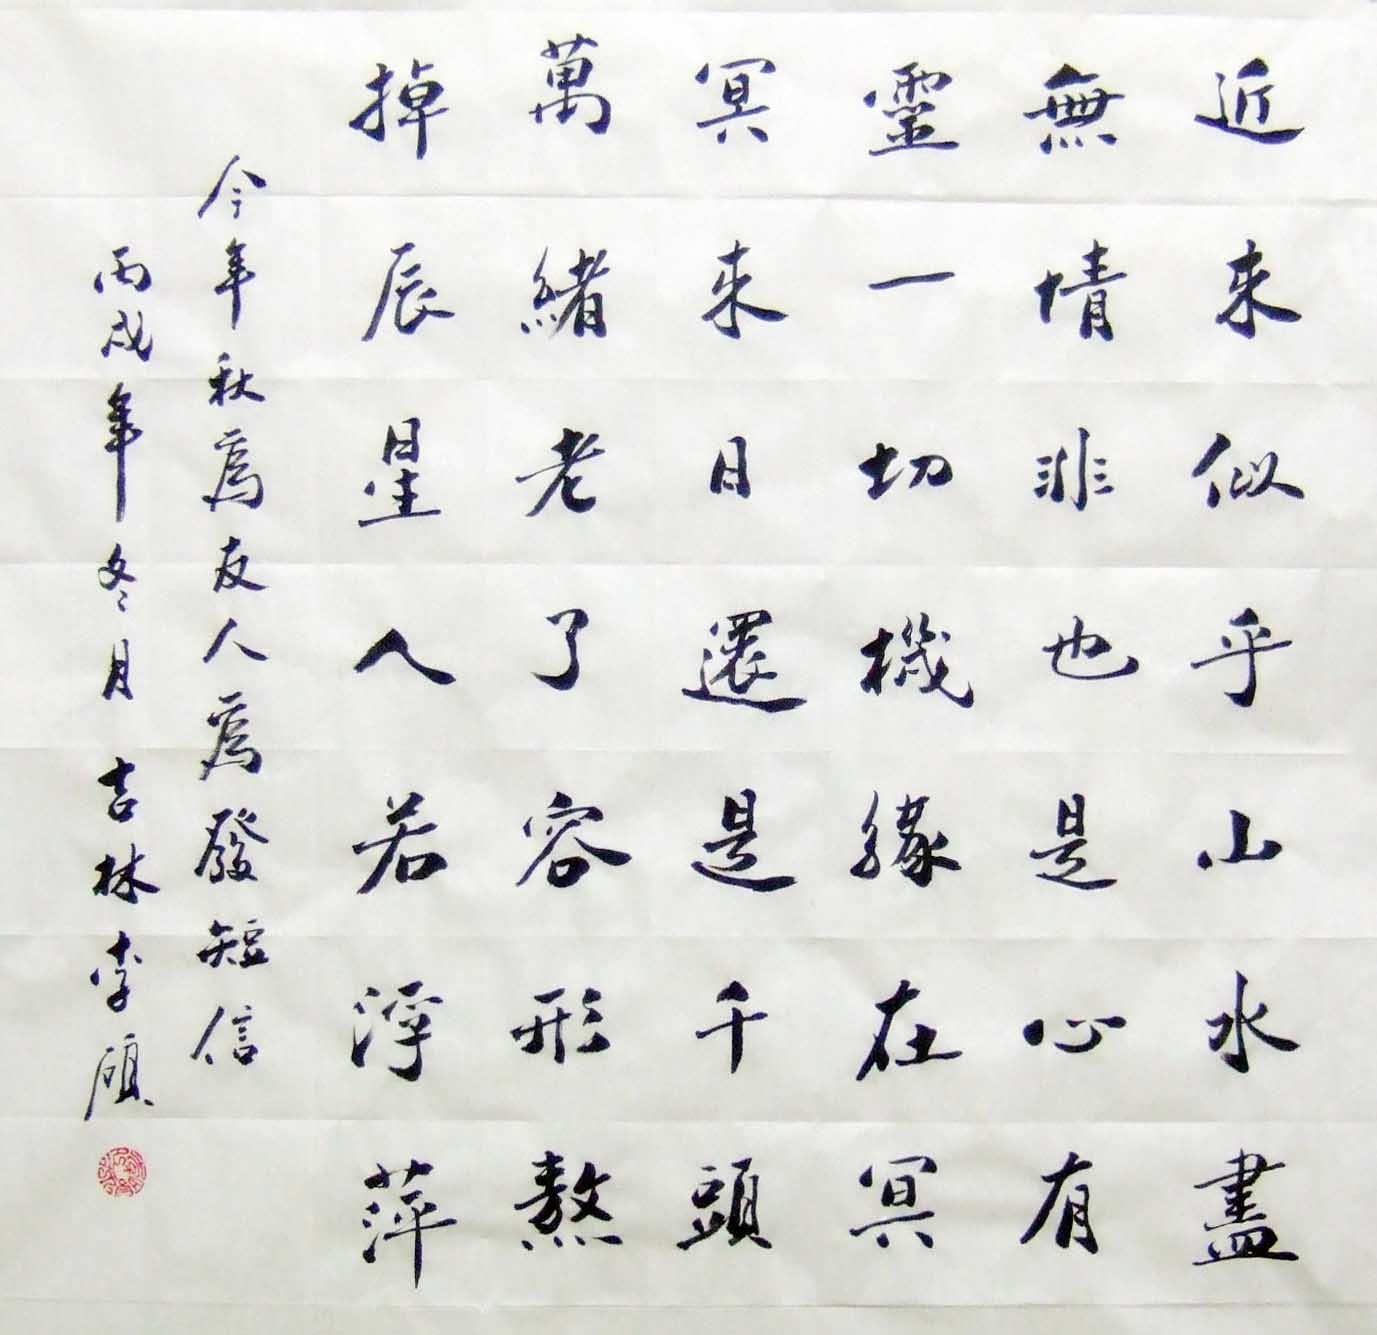 近来似乎山水盡
無情非也是心有
靈一切機緣在冥
冥来日還是千頭
萬緒老了容形熬
掉辰星人若浮萍
今年秋為友人為發短信
丙戌年冬月吉林李碩